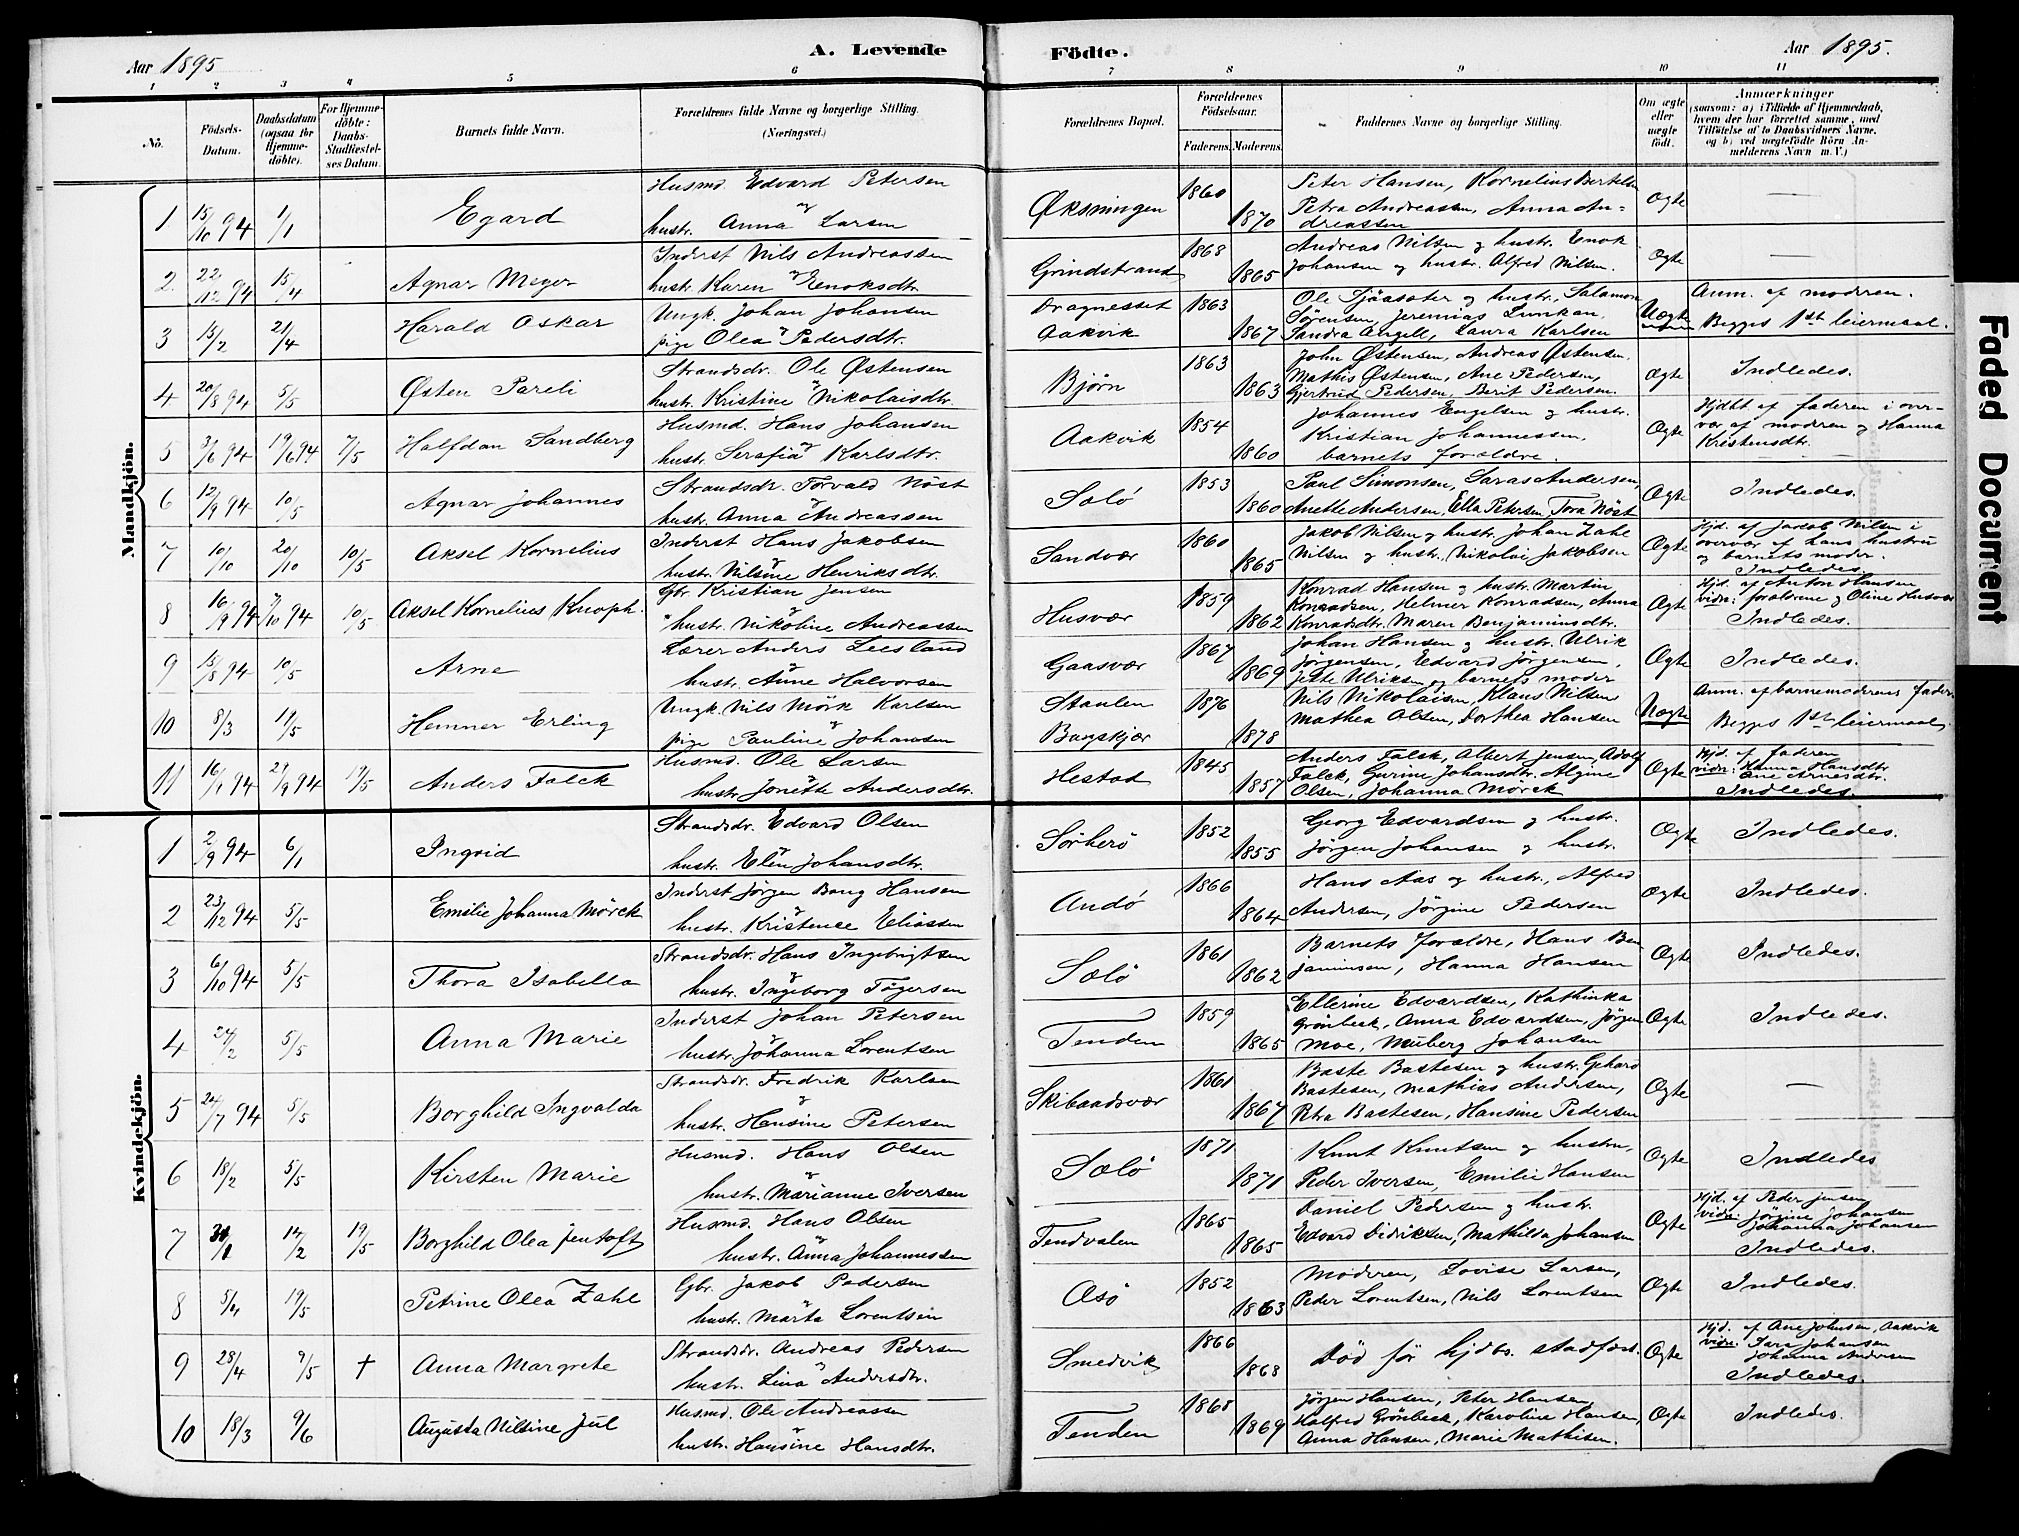 Aar 1895
A. Levende
Födte.
Aar 1895.
1 2 3 4 5 6 7 8 9 10 11
No.
Födsels-Datum.
Daabsdatum (ogsaa for Hjemmedöbte).
For Hjemmedöbte: Daabs-Stadfæstelses Datum.
Barnets fulde Navn.
Forældrenes fulde Navne og borgerlige Stilling.
(Næringsvei.)
Forældrenes Bopæl.
Forældrenes Födselsaar.
Faderens. Moderens.
Faddernes Navne og borgerlige Stilling.
Om ægte eller uægte födt.
Anmærkninger
(saasom: a) i Tilfælde af Hjemmedaab, hvem der har forrettet samme, med Tilföielse af to Daabsvidners Navne, og b) ved uægtefödte Börn Anmelderens Navn m. V.)
Mandkjön.
1 15/10 94 1/1 Egard Husmd. Edvard Petersen og hustr. Anna Larsen Øksningen 1860 1870 Peter Hansen, Kornelius Bertelsen Petra Andreassen, Anna Andreassen Ægte —
2. 22/12 94 15/4 Agnar Meyer Inderst Nils Andreassen og hustr. Karen Enoksdtr. Grindstrand 1868 1865 Andreas Nilsen og hustr. Enok Johansen og hustr. Alfred Nilsen. Ægte —
3 15/2 21/4 Harald Oskar Ungk. Johan Johansen og pige Olea Pedersdtr. Dragnesset Aakvik 1863 1867 Ole Sjåaseter og hustr., Salamon Sørensen, Jeremias Lunkan, Sandra Angell, Laura Karlsen Uægte Anm. af moderen. Begges 1st leiermaal.
4 20/8 94 5/5 Østen Pareli Strandsdr. Ole Østensen og hustr. Kristine Nikolaisdtr. Bjørn 1863 1863 John Østensen, Andreas Østensen. Mathis Østensen, Ane Pedersen, Gjertrud Pedersen, Berit Pedersen. Ægte Indledes.
5 3/6 94 19/6 94 7/5 Halfdan Sandberg Husmd. Hans Johansen og hustr. Serafia Karlsdtr. Aakvik 1854 1860 Johannes Engelsen og hustr. Kristian Johannessen, barnets forældre. Ægte Hjdbt af faderen i overvær af moderen og Hanna Kristensdtr.
6 12/9 94 10/5 Agnar Johannes Strandsdr. Torvald Nöst og hustr. Anna Andreassen Sælö 1853 1860 Paul Simonsen, Saras Andersen, Anette Andersen, Ella Petersen Tora Nöst Ægte Indledes.
7 10/10 20/10 10/5 Aksel Kornelius Inderst Hans Jakobsen og hustr. Nilsine Henriksdtr. Sandvær 1860 1865 Jakob Nilsen og hustr. Johan Zahl Nilsen og hustr. Nikolai Jakobsen Ægte Hjd. af Jacob Nilsen i overvær af hans hustru og barnets moder. Indledes.
8 16/9 94 7/10 94 10/5 Aksel Kornelius Knoph. Gbr. Kristian Jensen og hustr. Nikoline Andreassen Husvær 1859 1862 Konrad Hansen og hustr. Martin Konradsen, Helmer Konradsen, Anna Konradsdtr. Maren Benjaminsdtr. Ægte Hjd. af Anton Hansen vidn: forældrene og Oline Husvær Indledes.
9 15/8 94 10/5 Arne Lærer Anders Leesland og hustr. Anne Halvorsen Gaasvær 1867 1869 Johan Hansen og hustr. Ulrik Jörgensen, Edvard Jörgensen, Jette Ulriksen og barnets moder Ægte Indledes.
10 8/3 19/5 Hemner Erling Ungk. Nils Mörk Karlsen og pige Pauline Johansen Staulen Bangskjær 1876 1878 Nils Nikolaisen, Klaus Nilsen Mathea Olsen, Dorthea Hansen Uægte Anm. af barnemoderens fader. Begges 1st leiermaal.
11 16/1 94 29/9 94 19/5 Anders Falck Husmd. Ole Larsen og hustr. Jonette Andersdtr. Hestad 1845 1857 Anders Falck, Albert Jensen, Adolf Falck, Gurine Johansdtr. Algine Olsen, Johanna Mörck Ægte Hjd. af faderen vidn: Hanna Hansdtr. Ane Arnesdtr. Indledes.
Kvindekjön.
1 2/9 94 6/1 Ingrid Strandsdr. Edvard Olsen og hustr. Elen Johansdtr. Sörherö 1852 1855 Georg Edvardsen og hustr. Jörgen Johansen og hustr. Ægte Indledes.
2 23/12 94 5/5 Emilie Johanna Mörck Inderst Jörgen Bang Hansen og hustr. Kristence Eliassen Andö 1866 1864 Hans Aas og hustr., Alfred Andersen, Jörgine Pedersen Ægte Indledes.
3 6/10 94 5/5 Thora Isabella Strandsdr. Hans Ingebrigtsen og hustr. Ingeborg Tögersen Sælö 1861 1862 Barnets forældre, Hans Benjaminsen, Hanna Hansen Ægte Indledes.
4 24/2 5/5 Anna Marie Inderst Johan Petersen og hustr. Johanna Lorentsen Tenden 1859 1865 Ellerine Edvardsen, Kathinka Grönbeck, Anna Edvardsen, Jörgen Moe, Muberg Johansen Ægte Indledes.
5 24/7 94 5/5 Borghild Ingvalda Strandsdr. Fredrik Karlsen og hustr. Hansine Petersen Skibaadsvær 1861 1867 Baste Bastesen og hustr. Gehard Bastesen, Mathias Andersen, Petra Bastesen, Hansine Pedersen Ægte —
6 18/2 5/5 Kirsten Marie Husmd. Hans Olsen og hustr. Marianne Iversen Sælö 1871 1871 Knut Knutsen og hustru, Peder Iversen, Emilie Hansen Ægte Indledes
7 31/1 17/2 19/5 Borghild Olea Jentoft Husmd. Hans Olsen og hustr. Anna Johannessen Tendvalen 1865 1865 Daniel Pedersen og hustr. Edvard Didriksen, Mathilda Johansen Ægte Hjd. af Peder Jensen vidn: Jörgine Johansen Johanna Johansen Indledes.
8 5/4 19/5 Petrine Olea Zahl Gbr. Jakob Pedersen og hustr. Marta Lorentsen Asö 1852 1863 Moderen, Lovise Larsen, Peder Lorentsen, Nils Lorentsen Ægte Indledes.
9 28/4 9/5 † Anna Margrete Strandsdr. Andreas Pedersen og hustr. Lina Andersdtr. Smedvik 1866 1868 Död för hjdbs. stadfæst. Ægte Hjd. af Ane Johnsen, Aakvik vidn: Sara Johansen Johanna Andersen Indledes.
10 18/3 9/6 Augusta Nilsine Jul Husmd. Ole Andreassen og hustr. Hansine Hansdtr. Tenden 1868 1869 Jörgen Hansen, Peter Hansen, Halfred Grönbeck, Karoline Hansen, Anna Hansen, Marie Mathisen. Ægte Indledes.
Faded Document